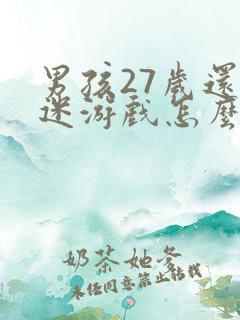 男孩27歲還
迷游戲怎麼
奶茶她爹
未经同意禁止转载